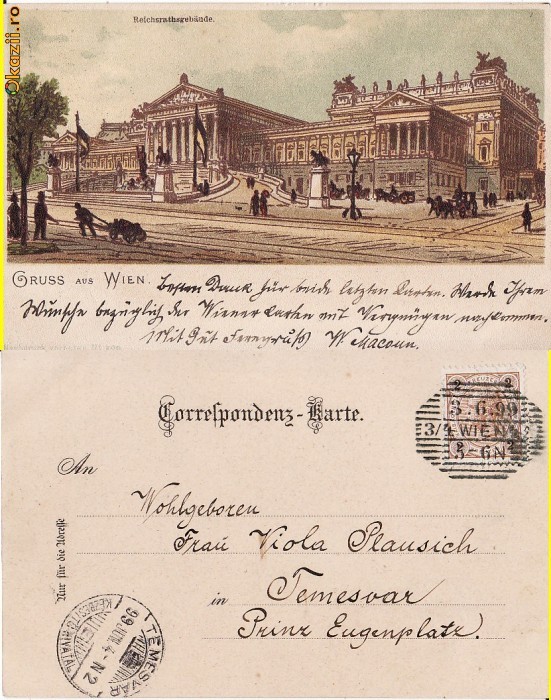 Okazii.ro
Reichsrathsgebäude.
GRUSS AUS WIEN.
Besten Dank für beide letzten Karten. Werde Ihrem
Wunsche bezüglich der Wiener Karten mit Vergnügen nachkommen.
Mit Gut Ferngruß W Macoun.
Correspondenz-Karte.
2 2
3.6.99
3/1 WIEN
5-6N
An
Wohlgeboren
Frau Viola Plausich
in Temesvar
Prinz Eugenplatz.
Nur für die Adresse
TEMESVÁR
99 JUN. 4 - N 2